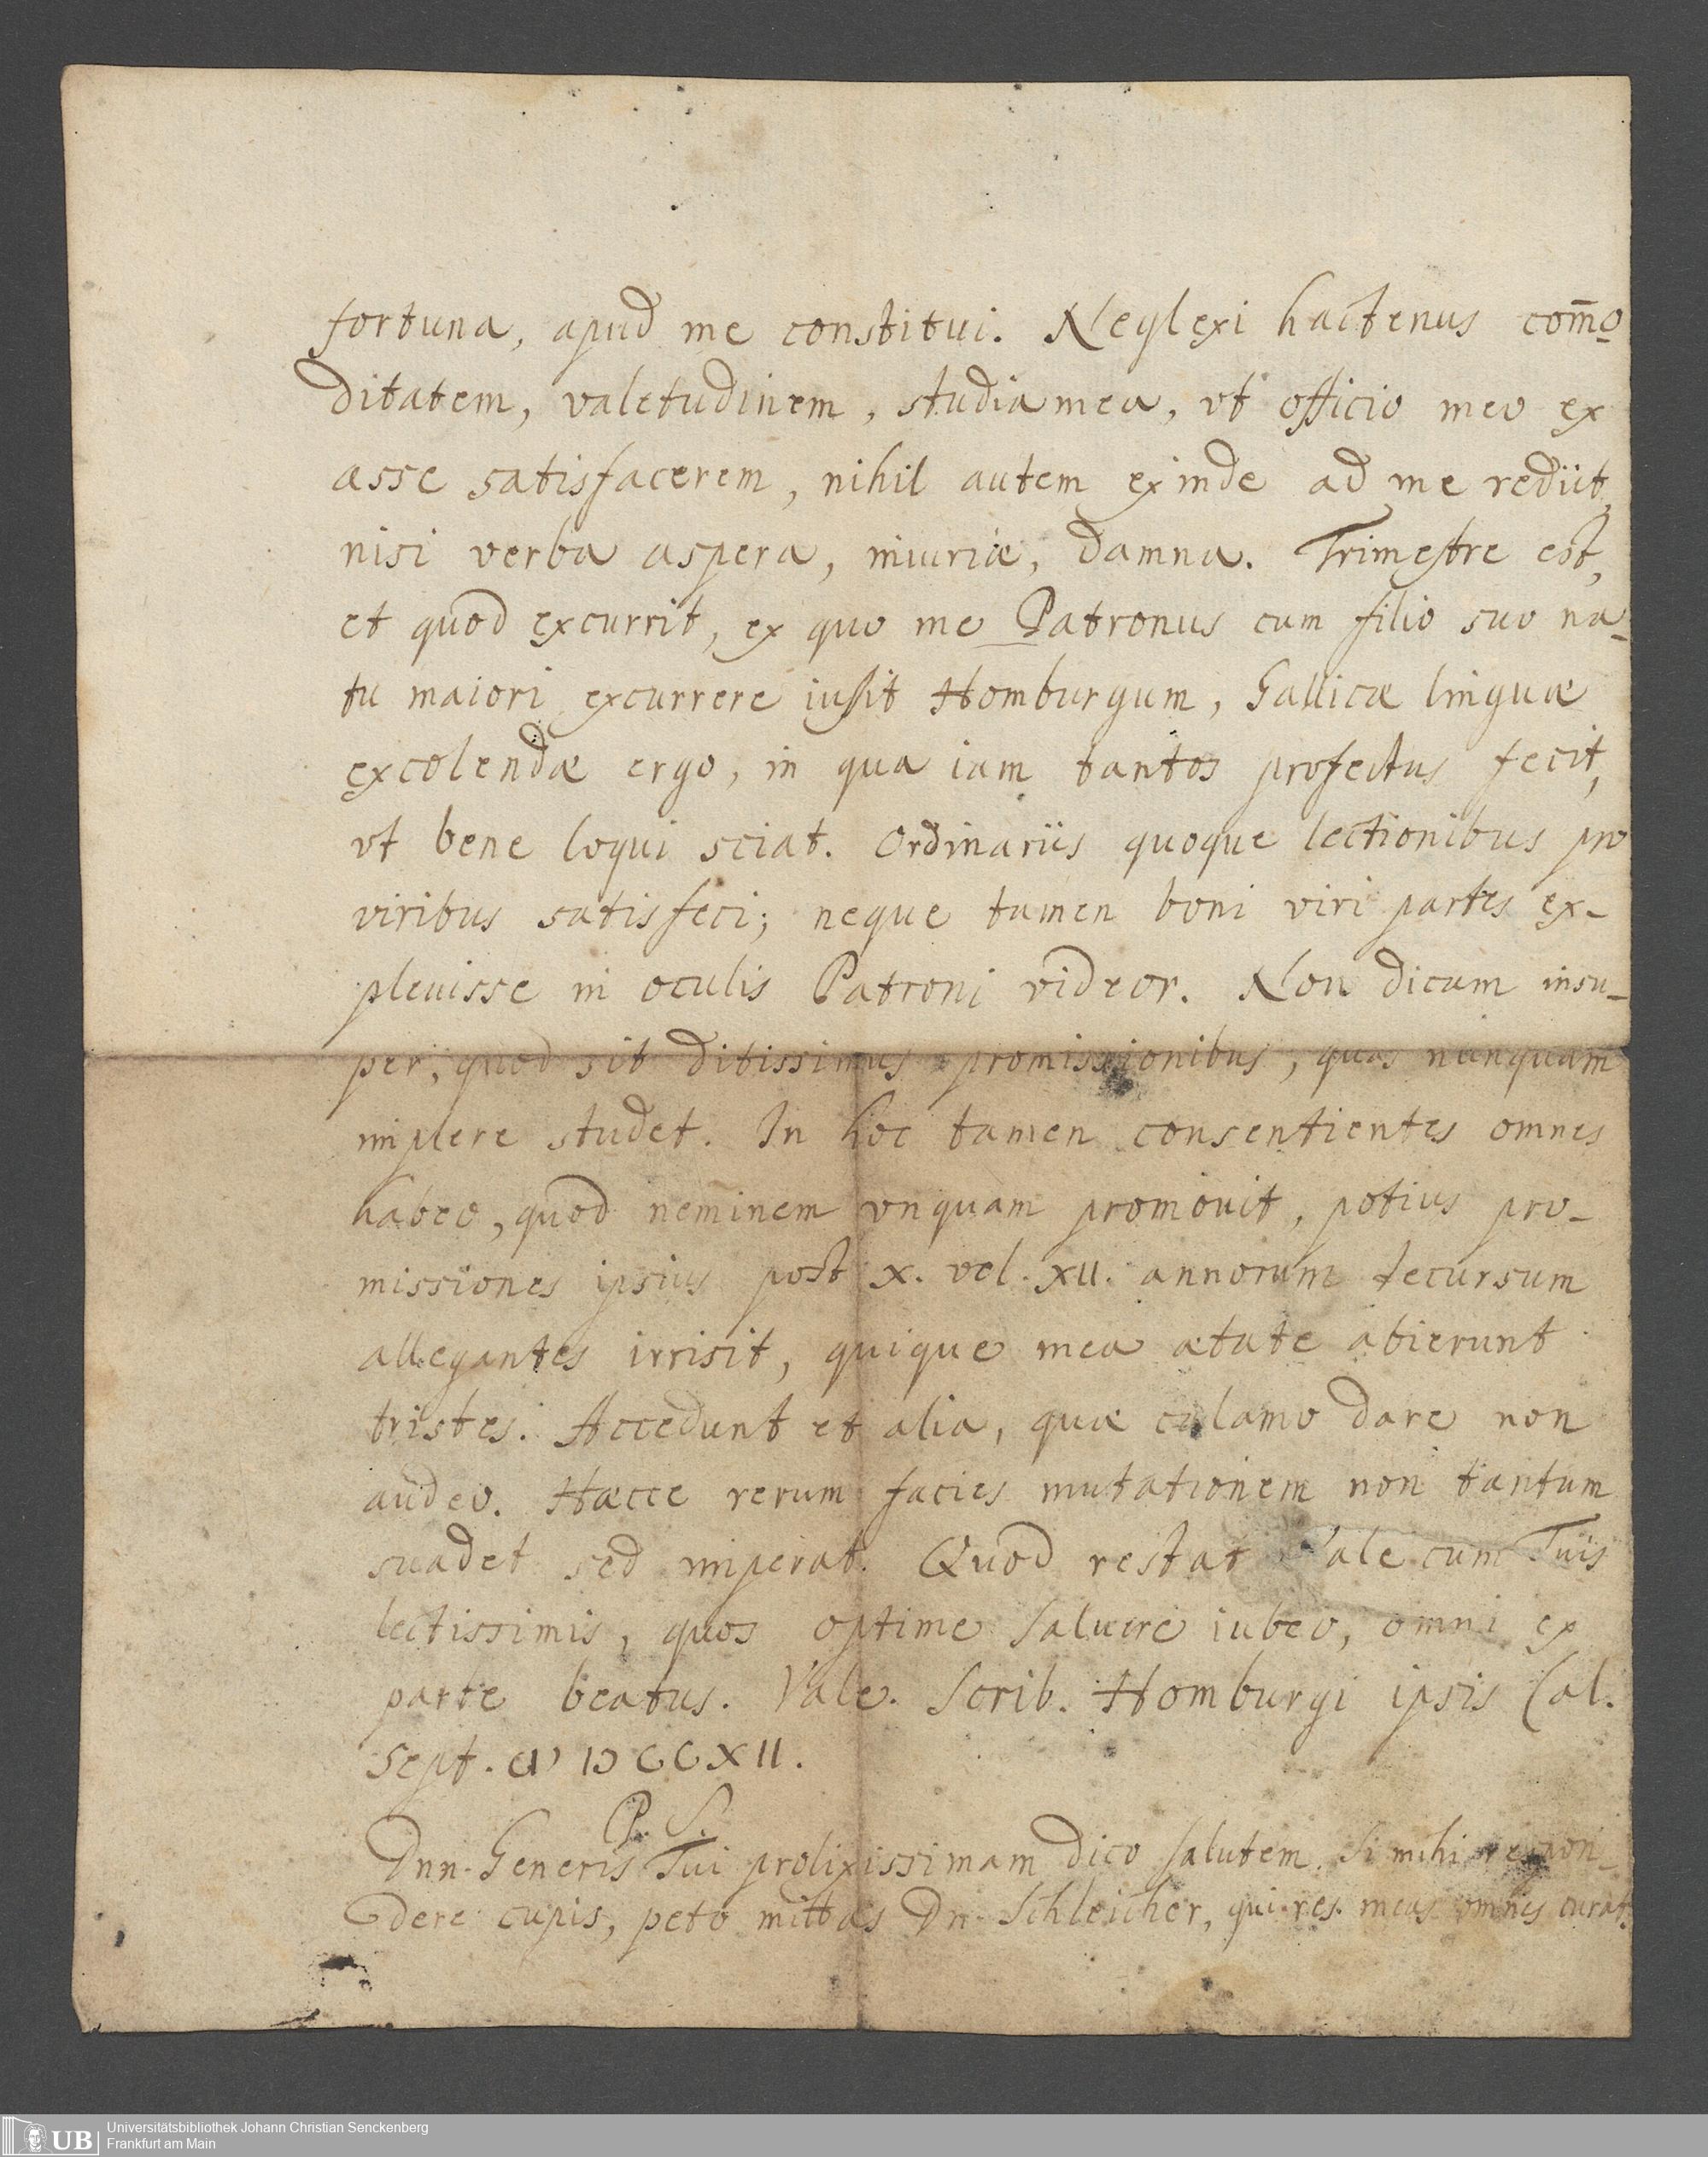 fortuna, apud me constitui. Neglexi hactenus com̄o-
ditatem, valetudinem, studia mea, vt officio meo ex
asse satisfacerem, nihil autem exinde ad me rediit,
nisi verba aspera, iniuriæ, damna. Trimestre est,
et quod excurrit, ex quo me Patronus cum filio suo na-
tu maiori excurrere iussit Homburgum, Gallicæ linguæ
excolendæ ergo, in qua iam tantos profectus fecit,
vt bene loqui sciat. Ordinariis quoque lectionibus pro
viribus satisfeci; neque tamen boni viri partes ex-
pleuisse in oculis Patroni videor. Non dicam insu-
per, quod sit ditissimus promissionibus, quas nunquam
implere studet. In hoc tamen consentientes omnes
habeo, quod neminem vnquam promouit, potius pro-
missiones ipsius post X. vel. XII. annorum decursum
allegantes irrisit, quique mea ætate abierunt
tristes. Accedunt et alia, quæ calamo dare non
audeo. Hæcce rerum facies mutationem non tantum
suadet sed imperat. Quod restat Vale cum Tuis
lectissimis, quos optime saluere iubeo, omni ex
parte beatus. Vale. Scrib. Homburgi ipsis Cal.
Sept. CIↃ IↃCCXII.
P. S.
Dnn. Generis Tui prolixissimam dico salutem. Si mihi respon-
dere cupis, peto mittas Dn. Schleicher, qui res meas omnes curat.
UB
Universitätsbibliothek Johann Christian Senckenberg
Frankfurt am Main